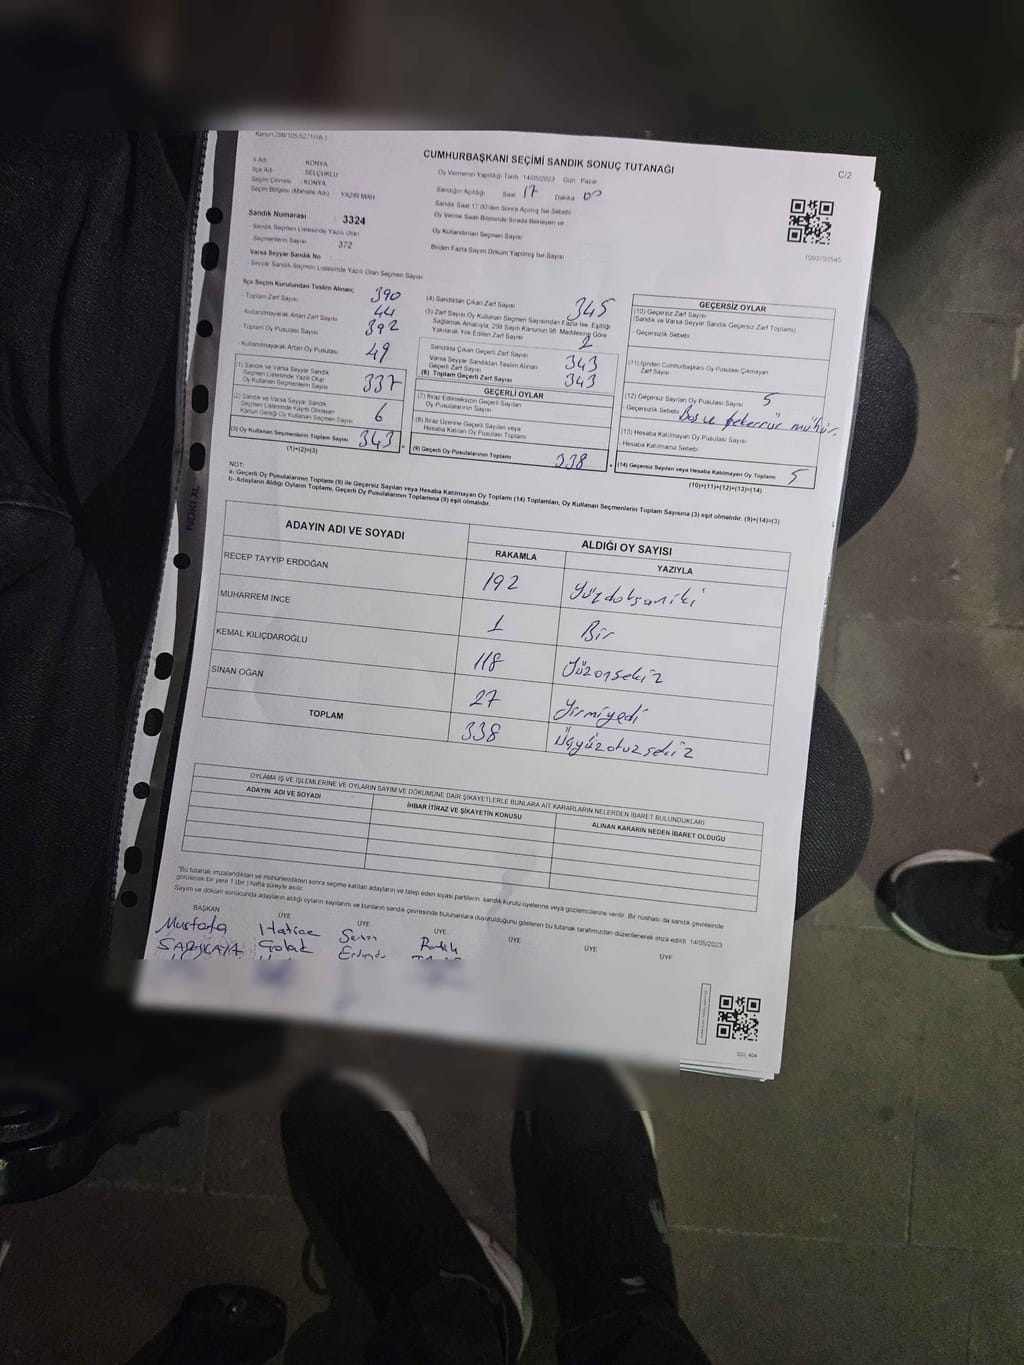 Kanun:298/105,6271/18-1
CUMHURBAŞKANI SEÇİMİ SANDIK SONUÇ TUTANAĞI
C/2
İl Adı : KONYA
İlçe Adı : SELÇUKLU
Seçim Çevresi : KONYA
Seçim Bölgesi (Mahalle Adı) YAZIR MAH
Oy Vermenin Yapıldığı Tarih :14/05/2023 Gün : Pazar
Sandığın Açıldığı Saat 17 Dakika 00
Sandık Saat 17.00'den Sonra Açılmış İse Sebebi
Oy Verme Saati Bitiminde Sırada Bekleyen ve
Oy Kullandırılan Seçmen Sayısı
Birden Fazla Sayım Döküm Yapılmış İse Sayısı
Sandık Numarası 3324
- Sandık Seçmen Listesinde Yazılı Olan
Seçmenlerin Sayısı 372
Varsa Seyyar Sandık No
- Seyyar Sandık Seçmen Listesinde Yazılı Olan Seçmen Sayısı
İlçe Seçim Kurulundan Teslim Alınan;
- Toplam Zarf Sayısı 390
- Kullanılmayarak Artan Zarf Sayısı 44
- Toplam Oy Pusulası Sayısı 392
- Kullanılmayarak Artan Oy Pusulası 49
(1) Sandık ve Varsa Seyyar Sandık
Seçmen Listesinde Yazılı Olup
Oy Kullanan Seçmenlerin Sayısı 337
(2) Sandık ve Varsa Seyyar Sandık
Seçmen Listesinde Kayıtlı Olmayan
Kanun Gereği Oy Kullanan Seçmen Sayısı 6
(3) Oy Kullanan Seçmenlerin Toplam Sayısı 343
(1)+(2)=(3)
(4) Sandıktan Çıkan Zarf Sayısı 345
(5) Zarf Sayısı Oy Kullanan Seçmen Sayısından Fazla İse, Eşitliği
Sağlamak Amacıyla; 298 Sayılı Kanunun 98. Maddesine Göre
Yakılarak Yok Edilen Zarf Sayısı 2
Sandıkta Çıkan Geçerli Zarf Sayısı 343
Varsa Seyyar Sandıktan Teslim Alınan
Geçerli Zarf Sayısı
(6) Toplam Geçerli Zarf Sayısı 343
GEÇERLİ OYLAR
(7) İtiraz Edilmeksizin Geçerli Sayılan
Oy Pusulalarının Sayısı
(8) İtiraz Üzerine Geçerli Sayılan veya
Hesaba Katılan Oy Pusulası Toplamı
(9) Geçerli Oy Pusulalarının Toplamı 338
1093/93545
GEÇERSİZ OYLAR
(10) Geçersiz Zarf Sayısı
(Sandık ve Varsa Seyyar Sandık Geçersiz Zarf Toplamı)
- Geçersizlik Sebebi
(11) İçinden Cumhurbaşkanı Oy Pusulası Çıkmayan
Zarf Sayısı
(12) Geçersiz Sayılan Oy Pusulası Sayısı 5
- Geçersizlik Sebebi Boş ve tekerrür mühür.
(13) Hesaba Katılmayan Oy Pusulası Sayısı
- Hesaba Katılmama Sebebi
(14) Geçersiz Sayılan veya Hesaba Katılmayan Oy Toplamı 5
(10)+(11)+(12)+(13)=(14)
NOT:
a- Geçerli Oy Pusulalarının Toplamı (9) ile Geçersiz Sayılan veya Hesaba Katılmayan Oy Toplamı (14) Toplamları, Oy Kullanan Seçmenlerin Toplam Sayısına (3) eşit olmalıdır. (9)+(14)=(3)
b- Adayların Aldığı Oyların Toplamı, Geçerli Oy Pusulalarının Toplamına (9) eşit olmalıdır.
ADAYIN ADI VE SOYADI
ALDIĞI OY SAYISI
RAKAMLA YAZIYLA
RECEP TAYYİP ERDOĞAN 192 Yüzdoksaniki
MUHARREM İNCE 1 Bir
KEMAL KILIÇDAROĞLU 118 Yüzonsekiz
SİNAN OĞAN 27 Yirmiyedi
TOPLAM 338 Üçyüzotuzsekiz
OYLAMA İŞ VE İŞLEMLERİNE VE OYLARIN SAYIM VE DÖKÜMÜNE DAİR ŞİKAYETLERLE BUNLARA AİT KARARLARIN NELERDEN İBARET BULUNDUKLARI
ADAYIN ADI VE SOYADI
İHBAR İTİRAZ VE ŞİKAYETİN KONUSU
ALINAN KARARIN NEDEN İBARET OLDUĞU
"Bu tutanak imzalandıktan ve mühürlendikten sonra seçime katılan adayların ve talep eden siyasi partilerin sandık kurulu üyelerine veya gözlemcilerine verilir. Bir nüshası da sandık çevresinde
görülecek bir yere 1 (bir ) hafta süreyle asılır.
Sayım ve döküm sonucunda adayların aldığı oyların sayılarını ve bunların sandık çevresinde bulunanlara duyurulduğunu gösteren bu tutanak tarafımızdan düzenlenerek imza edildi. 14/05/2023
BAŞKAN ÜYE ÜYE ÜYE ÜYE ÜYE ÜYE
Mustafa Hatice
SARIKAYA
SSI_404
NOKI XL